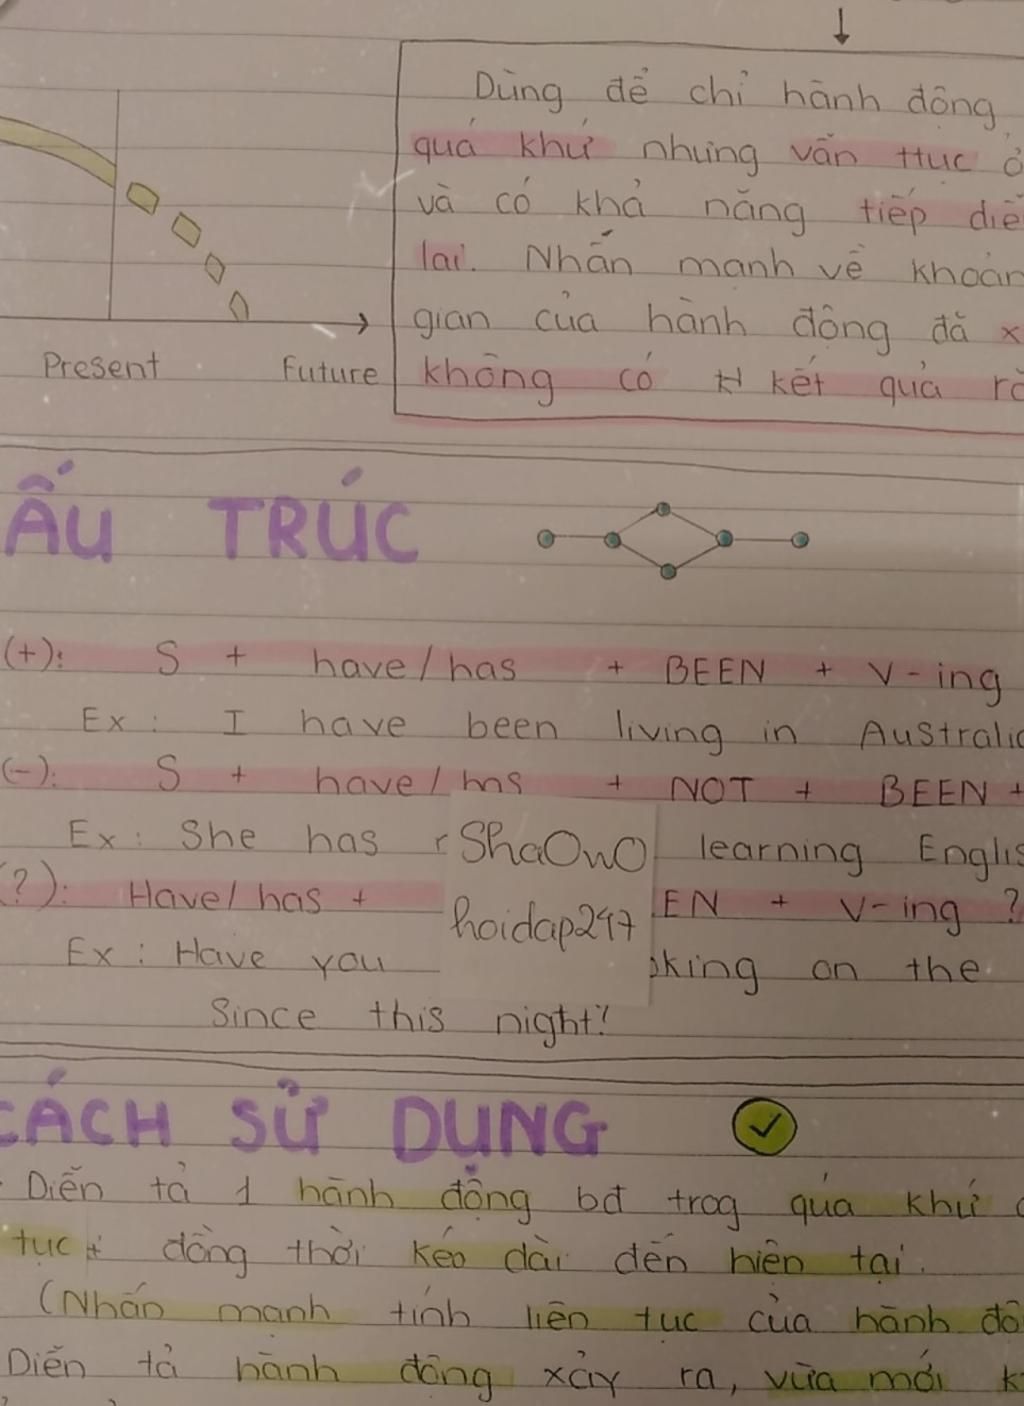 Dùng để chỉ hành động
quá khứ nhưng vẫn ttục ở
và có khả năng tiếp diễ
lai. Nhấn mạnh về khoản
gian của hành động đã x
không có kết quả rõ
Present Future
ẤU TRÚC
(+): S + have/has + BEEN + V-ing
Ex: I have been living in Australia
(-): S + have/has + NOT + BEEN +
Ex: She has learning Englis
ShaOwO
(?): Have/has + EN + V-ing ?
hoidap247
Ex: Have you oking on the
Since this night?
CÁCH SỬ DỤNG
- Diễn tả 1 hành động bđ trog qúa khứ
tục + đồng thời kéo dài đến hiện tại.
(Nhấn mạnh tính liên tục của hành độ
Diễn tả hành động xảy ra, vừa mới k